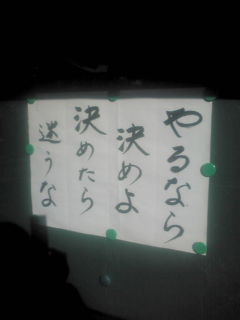 やるなら
決めよ
決めたら
迷うな